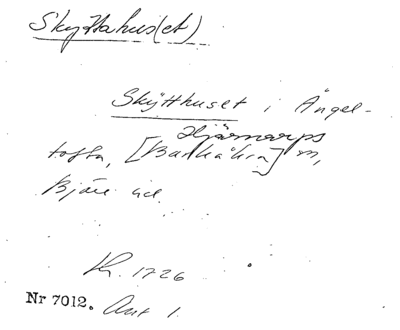 Skyttahus(et)
Skÿtthuset i Ängel-
Hjärnarps
tofta, [Barkåkra] sn,
Bjäre hd.
Kr. 1726
Nr 7012. Ant 1.